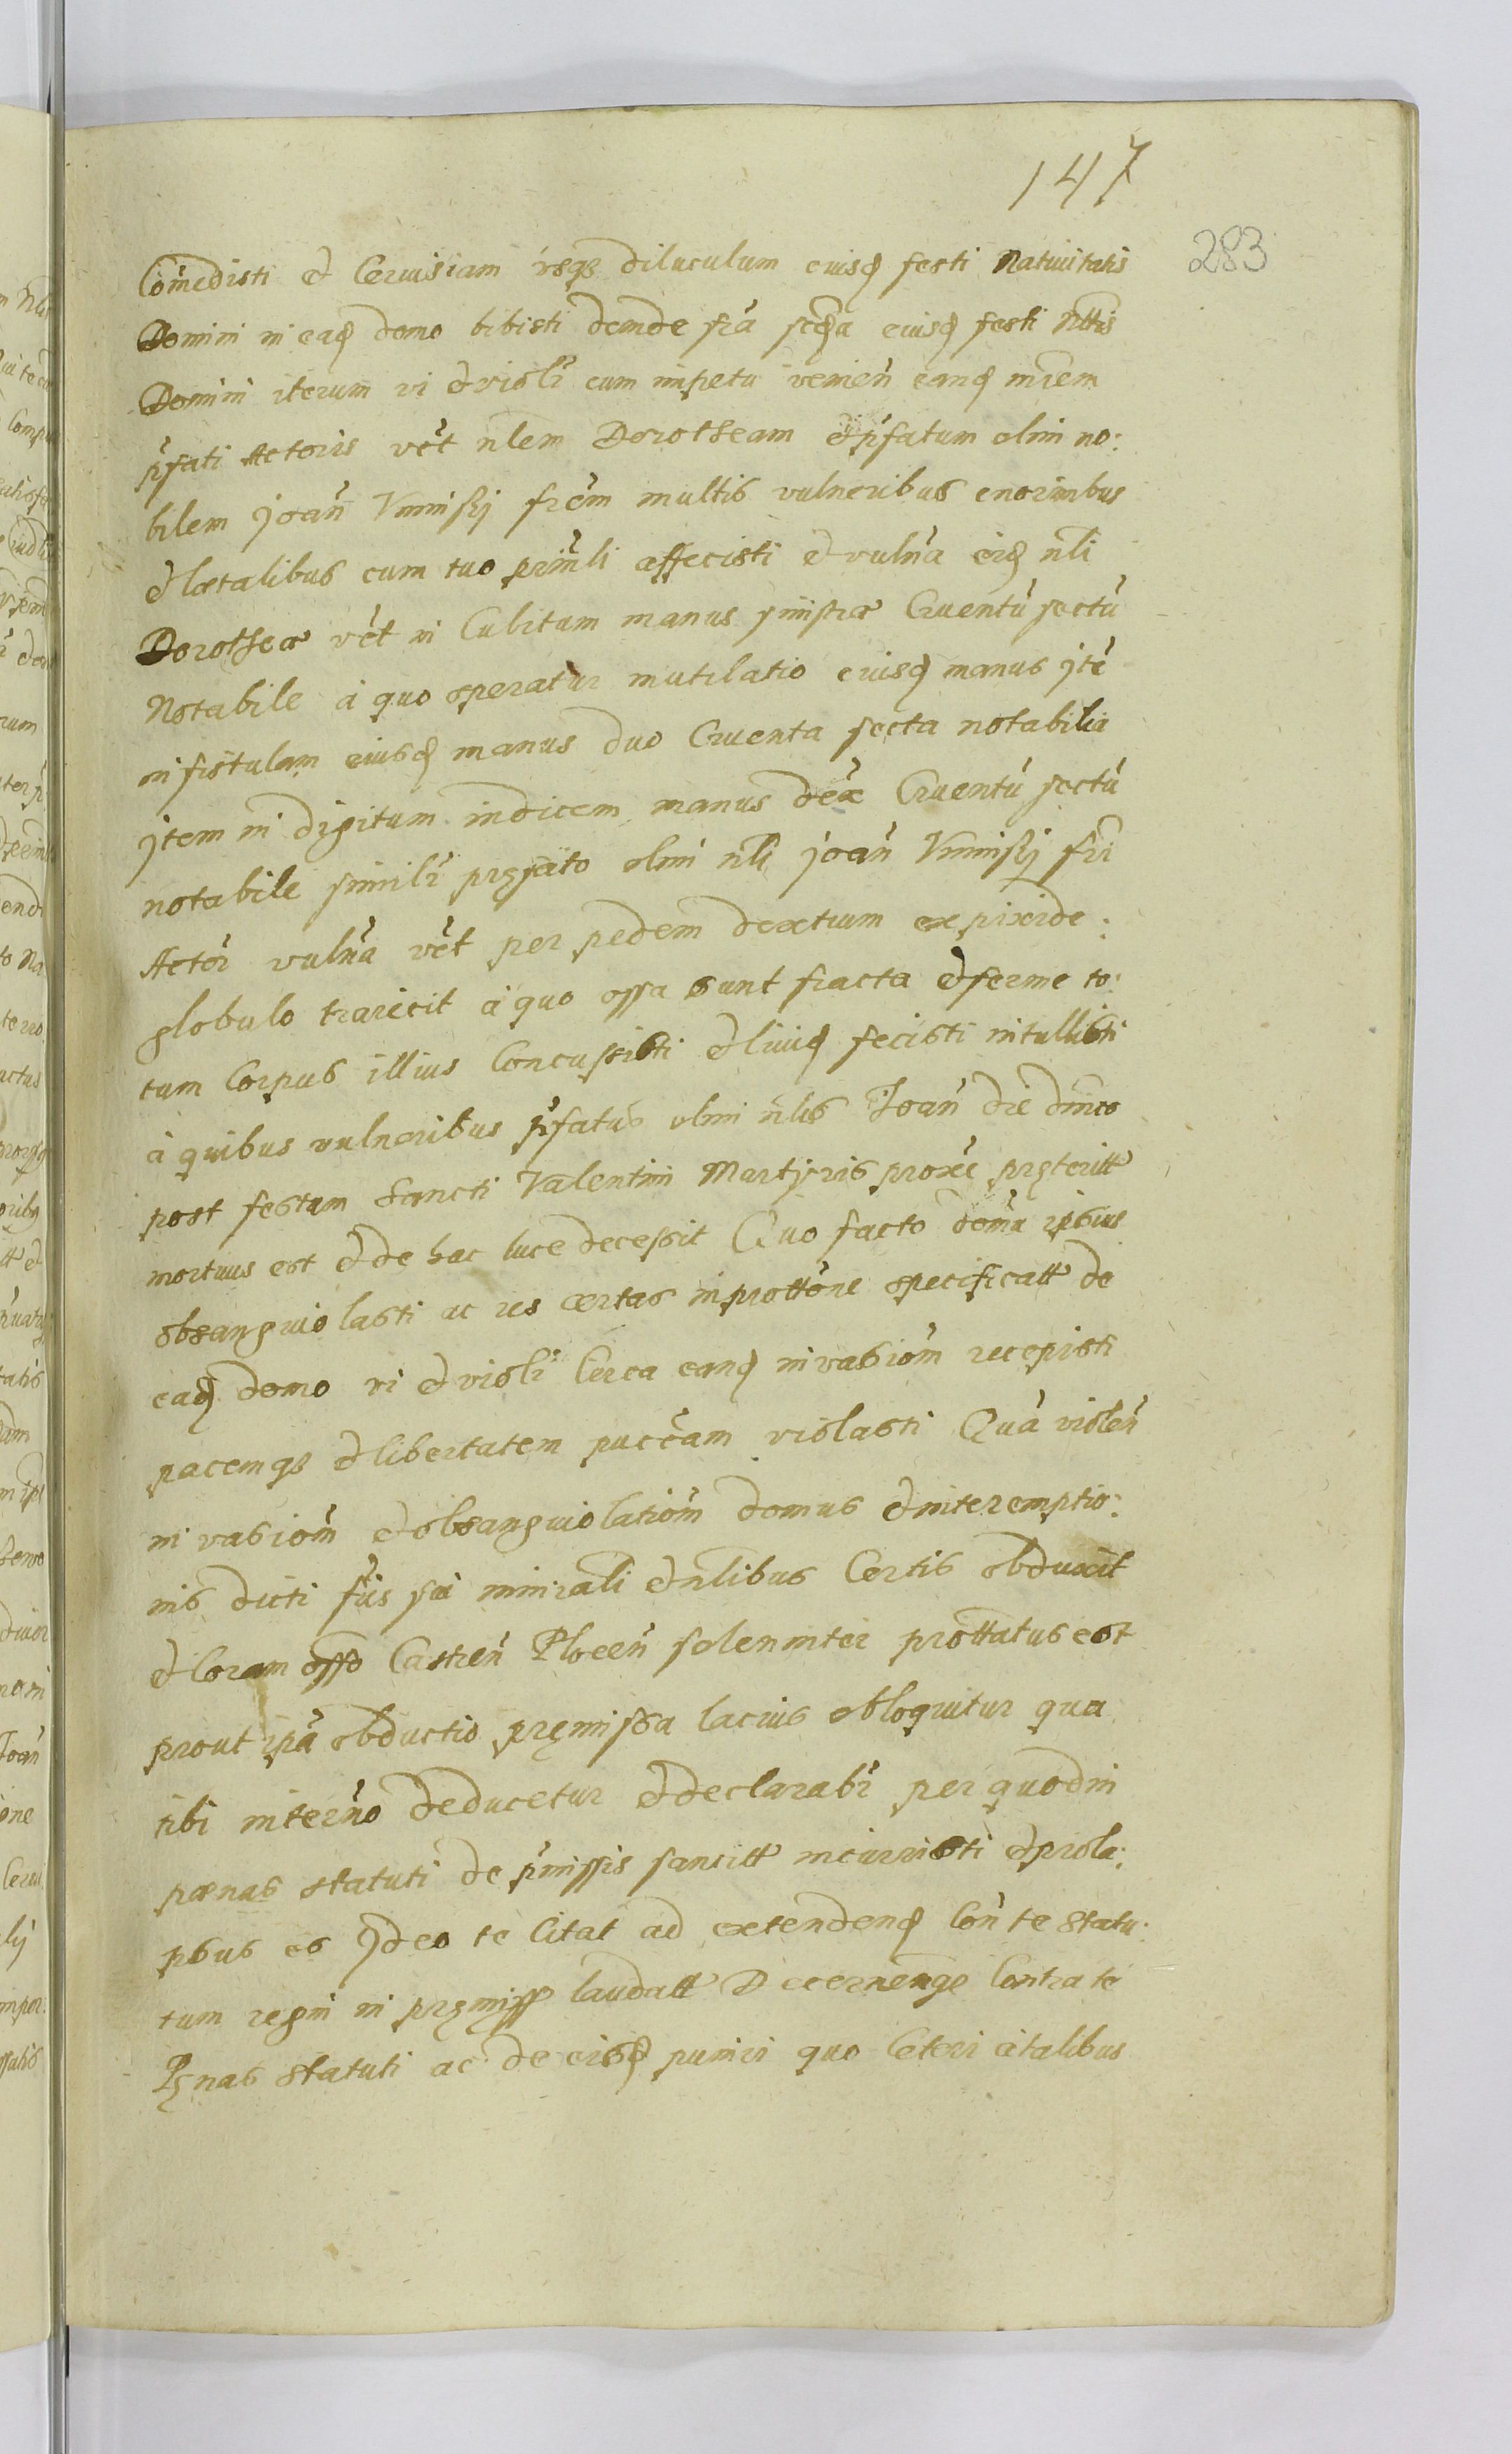 147
283
Com̃edisti et Ceruisiam vsq̃ diluculum eiusd festi Natiuitatis
Domini in ead domo bibisti deinde fr̃a scda eiusd festi Nttis
Domini iterum vi et violr̃ cum impetu venieñ eand mr̃em
p̃fati Actoris vc̃t nlem Dorotheam et p̃fatum olim no:
bilem Joañ Vminskj frẽm multis vulneribus enorimbus
et lœtalibus cum tuo prin̄li affecisti et vulñra eisd nli
Dorotheæ vc̃t in Cubitum manus sinistræ Cruentũ sectũ
Notabile a quo speratur mutilatio eiusd manus jtẽ
in fistulam eiusd manus duo Cruenta secta notabilia
jtem in digitum indicem manus dex̃ Cruentũ sectũ
notabile similr̃ pręfato olim nli joañ Vminskj fr̃i
Actor̃ vulñra vc̃t per pedem dextrum ex pixide:
globulo traiecit a quo ossa sunt fracta et ferme to:
tum Corpus illius Concussisti et liuid fecisti intullisti
a quibus vulneribus p̃fatus olim nlis Joañ die dnico
post festum Sancti Valentini Martyris proxe pręteritt
mortuus est et de hac luce decessit Quo facto domũ ipsius
obsanguiolasti ac res certas in prottõne specificatt de
ead domo vi et violr̃ Cerca eand invasiom̃ recepisti
pacemq̃ et libertatem puc̃cam violasti Quã violeñ
invasiom̃ et obsanguiolatiom̃ domus et interemptio:
nis dicti fr̃is sui minirali et nlibus Certis obduxit
et Coram offo Castreñ Ploceñ solenniter prottatus est
prout ipã obductio pręmissa lacius obloquitur qua
tibi interm̃o deducetur et declarabr̃ per quod in
pœnas statuti de p̃missis sancitt incurristi et prola:
psus es Jdeo te Citat ad extendend Coñ te statu:
tum regni in pręmiss laudatt Decernenq̃ Contra te
Pęnas statuti ac de eisd puniri quo Ceteri a talibus